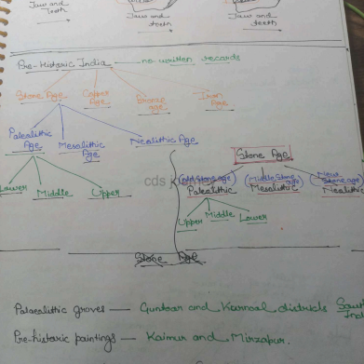 Jaw and
Teeth
Jaw and
teeth
Jaw and
teeth
Pre-Historic India — no written records
Stone Age
Copper
Age
Bronze
age
Iron
Age
Palealithic
Age
Mesalithic
Age
Nealithic Age
Lower
Middle
Upper
Stone Age
Old Stone age
Middle Stone
age
New
Stone age
Palealithic
Mesalithic
Nealithic
Upper
Middle
Lower
Stone Age
Palaealithic groves — Guntur and Karnool districts
Pre-historic paintings — Kaimur and Mirzapur.